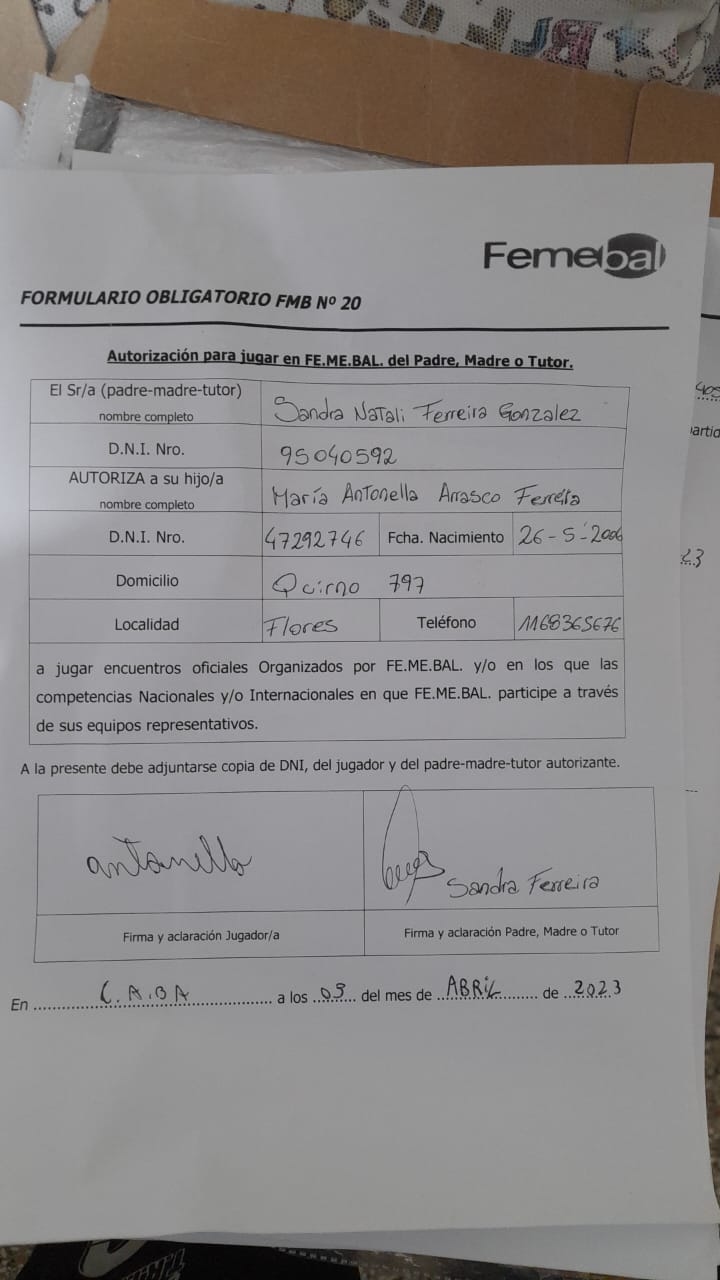 Femebal
FORMULARIO OBLIGATORIO FMB Nº 20
Autorización para jugar en FE.ME.BAL. del Padre, Madre o Tutor.
El Sr/a (padre-madre-tutor)
nombre completo
Sandra Natali Ferreira Gonzalez
D.N.I. Nro. 95040592
AUTORIZA a su hijo/a
nombre completo
María Antonella Arrasco Ferreira
D.N.I. Nro. 47292746 Fcha. Nacimiento 26-5-2006
Domicilio Qcirno 797
Localidad Flores Teléfono 1168365676
a jugar encuentros oficiales Organizados por FE.ME.BAL. y/o en los que las
competencias Nacionales y/o Internacionales en que FE.ME.BAL. participe a través
de sus equipos representativos.
A la presente debe adjuntarse copia de DNI, del jugador y del padre-madre-tutor autorizante.
antonella
Sandra Ferreira
Firma y aclaración Jugador/a Firma y aclaración Padre, Madre o Tutor
En C.A.BA a los 03 del mes de ABRIL de 2023